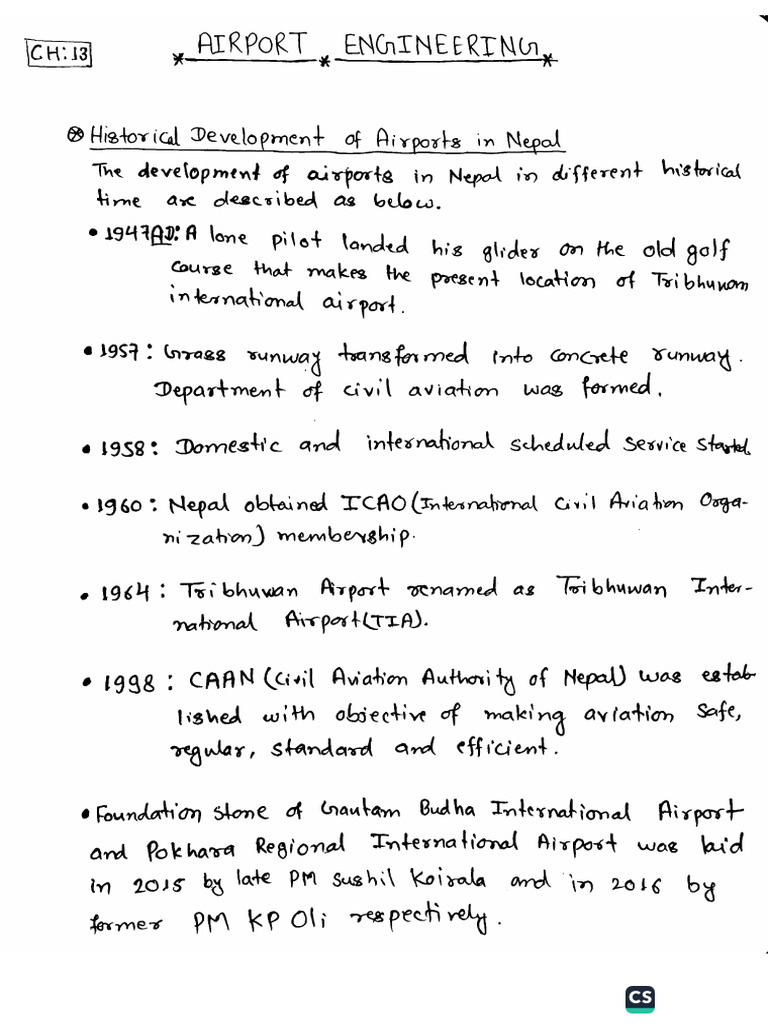 CH:13
* AIRPORT * ENGINEERING *
Historical Development of Airports in Nepal
The development of airports in Nepal in different historical
time are described as below.
• 1947AD: A lone pilot landed his glider on the old golf
course that makes the present location of Tribhuwan
international airport.
• 1957: Grass runway transformed into concrete runway.
Department of civil aviation was formed.
• 1958: Domestic and international scheduled service started.
• 1960: Nepal obtained ICAO (International Civil Aviation Orga-
nization) membership.
• 1964: Tribhuwan Airport renamed as Tribhuwan Inter-
national Airport (TIA).
• 1998: CAAN (Civil Aviation Authority of Nepal) was estab-
lished with objective of making aviation safe,
regular, standard and efficient.
• Foundation stone of Gautam Budha International Airport
and Pokhara Regional International Airport was laid
in 2015 by late PM Sushil Koirala and in 2016 by
former PM KP Oli respectively.
CS